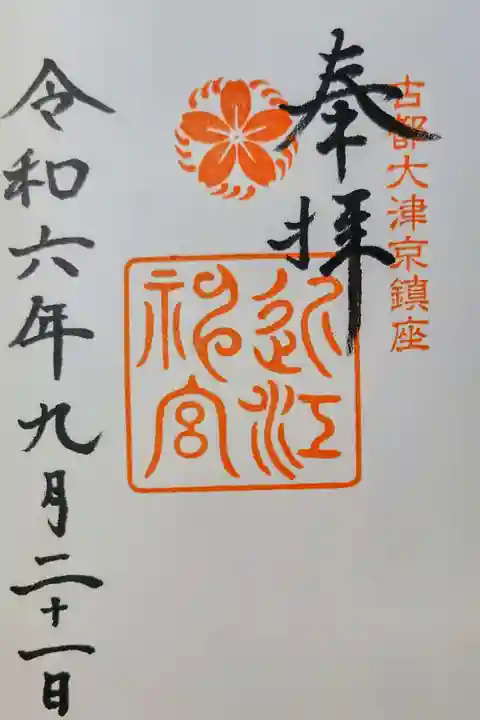 古都大津京鎮座
奉拝
近江神宮
令和六年九月二十一日